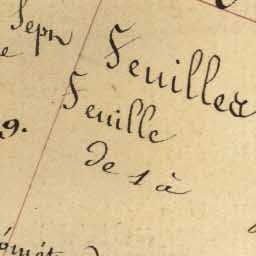 Sepn
Feuilles
e
Feuille
9.
de 1 à